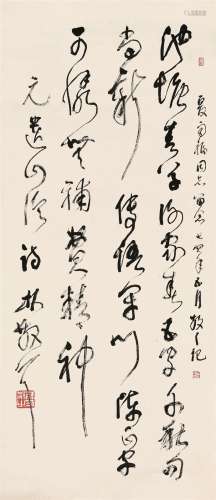 池塘春草謝家春五字千秋句
尚新傳語閉門陳正字
可憐無補費精神
元遺山論詩 林散耳
同志留念七四年五月散之記